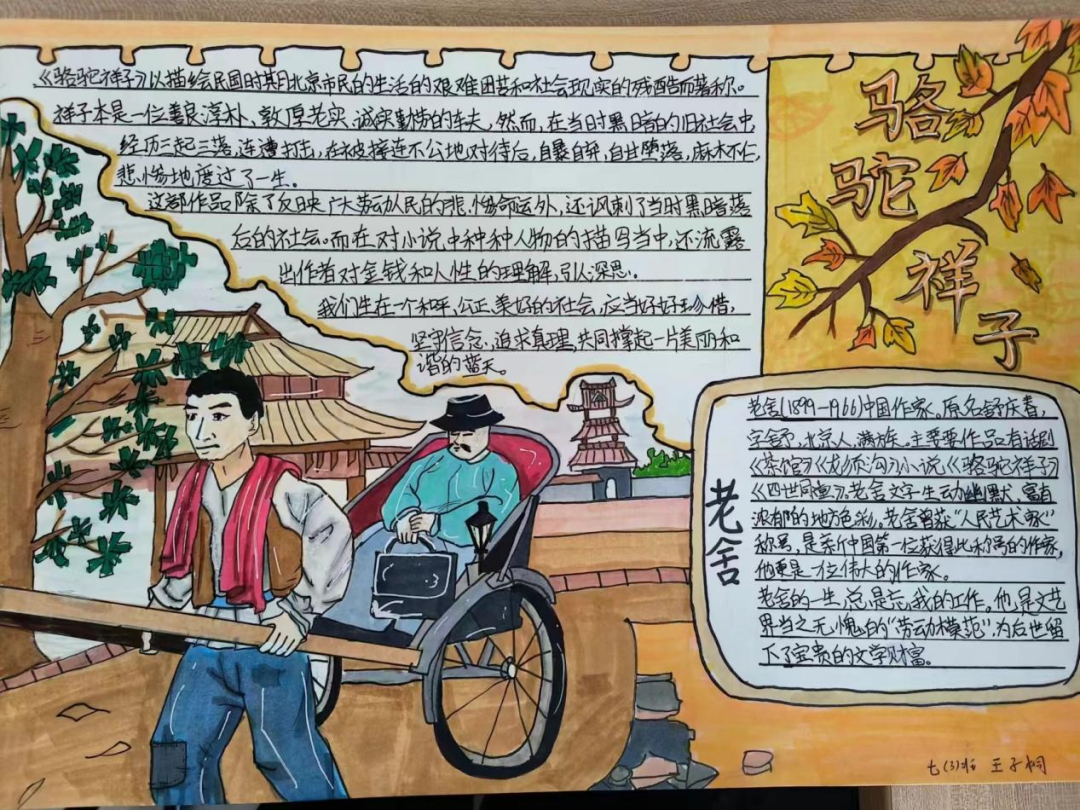 《骆驼祥子》以描绘民国时期北京市民的生活的艰难困苦和社会现实的残酷而著称。
祥子本是一位善良淳朴、敦厚老实、诚实勤劳的车夫,然而,在当时黑暗的旧社会中,
经历三起三落,连遭打击,在被接连不公地对待后,自暴自弃,自甘堕落,麻木不仁,
悲惨地度过了一生。
这部作品除了反映广大劳动人民的悲惨命运外,还讽刺了当时黑暗落
后的社会。而在对小说中种种人物的描写当中,还流露
出作者对金钱和人性的理解,引人深思。
我们生在一个和平、公正、美好的社会,应当好好珍惜,
坚守信念,追求真理,共同撑起一片美丽和
谐的蓝天。
骆驼祥子
老舍
老舍(1899-1966)中国作家。原名舒庆春,
字舍予,北京人,满族。主要要作品有话剧
《茶馆》《龙须沟》小说《骆驼祥子》
《四世同堂》。老舍文字生动幽默,富有
浓郁的地方色彩。老舍曾获“人民艺术家”
称号,是新中国第一位获得此称号的作家,
他更是一位伟大的作家。
老舍的一生,总是忘我的工作。他是文艺
界当之无愧的“劳动模范”,为后世留
下了宝贵的文学财富。
七(3)班 王子桐